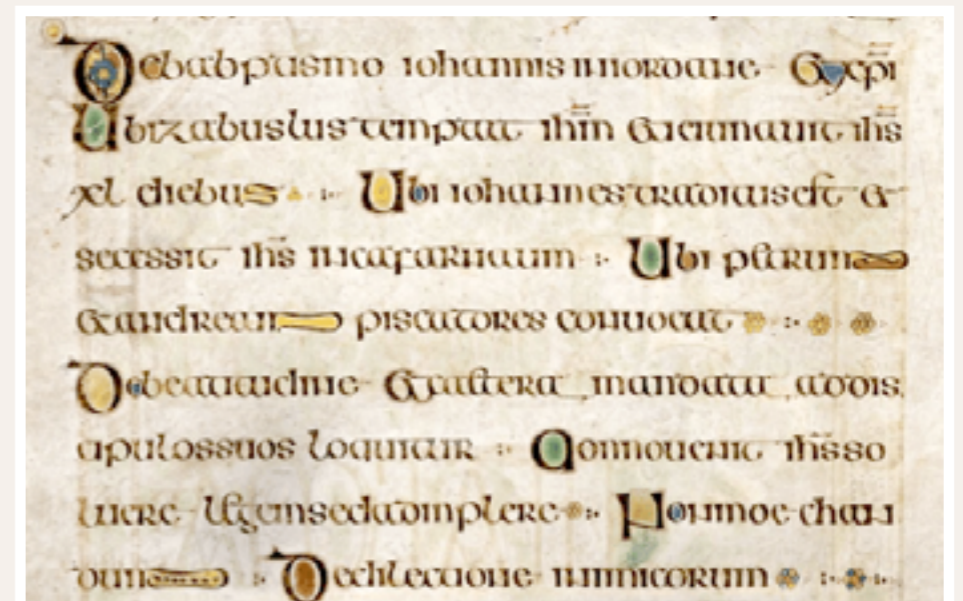 De babtismo iohannis in iordane Et xpi
Ubi zabulus temptat ihm Et ieiunauit ihs
xl diebus Ubi iohannes traditus est et
secessit ihs in cafarnaum Ubi petrum
Et andream piscatores conuocat
De beatitudine Et cetera mandata a do dis
apulos suos loquitur Non nouenit ihs so
luere legem sed adimplere Non moechan
dum De dilectione inimicorum